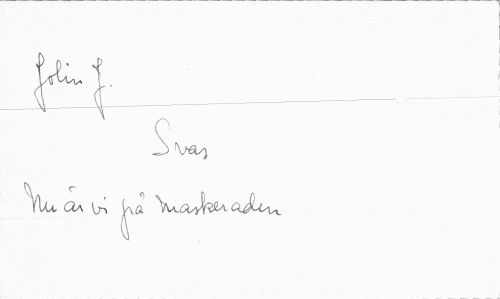 Jolin J.
Svar
Nu är vi på maskeraden